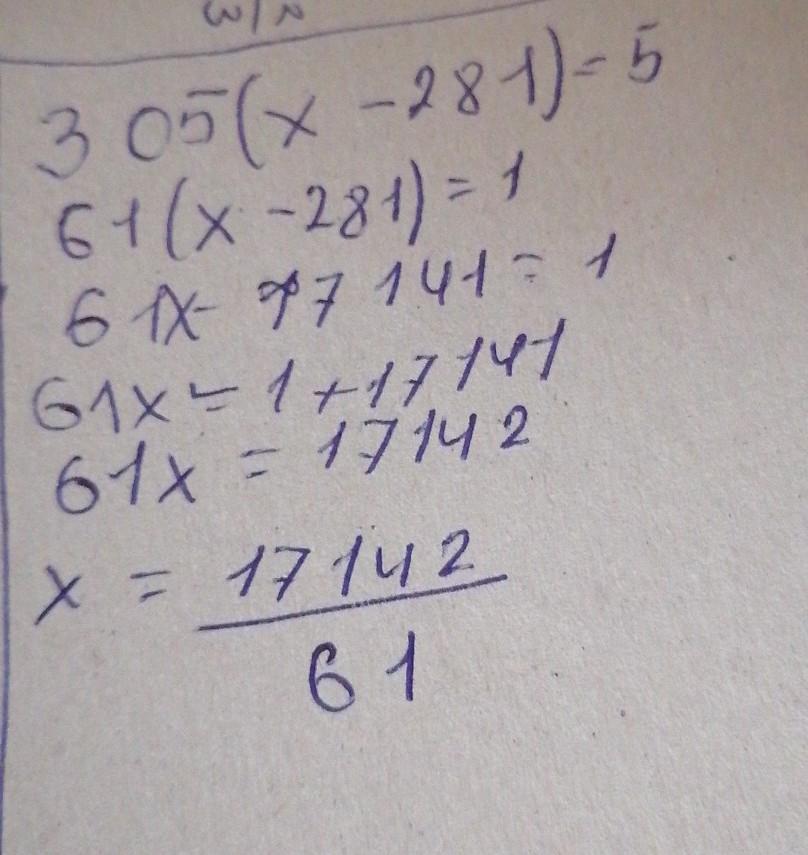 305(x-281)=5
61(x-281)=1
61x-17141=1
61x=1+17141
61x=17142
x=17142
61